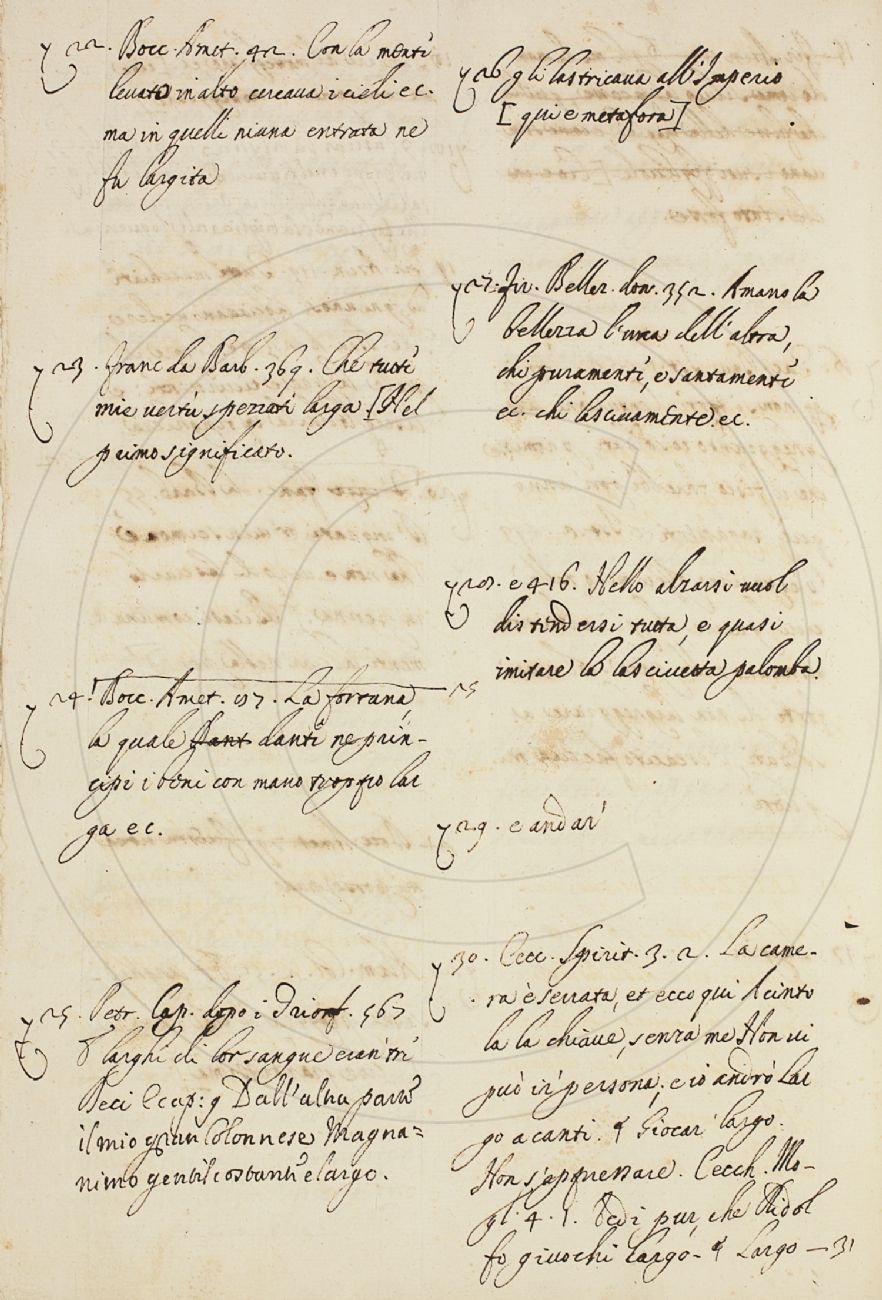 22. Bocc. Amet. 42. Con la mente
levato in alto cercava i cieli ec.
ma in quelli niuna entrata ne
fu largita
23. Franc. da Barb. 369. Che tutti
mie vertù spezzati larga [Nel
primo significato.
24. Bocc. Amet. 97. La fortuna,
la quale dante ne prin-
cipi i beni con mano troppo lar
ga ec.
25. Petr. Cap. dopo i Trionf. 567
larghi di lor sangue
Deci Ecap: 9 Dall'altra parte
il mio gran Colonnese Magna=
nimo gentil costante e largo.
26 gli lastricava all'Imperio
[qui e metafora]
27. Fir. Bellez. don. 352. Amano la
bellezza l'una dell'altra,
chi puramente, e santamente
ec. chi lascivamente. ec.
28. e 416. Nello alzarsi vuol
distendersi tutta, e quasi
imitare la lascivetta palomba.
25
29. e andar
30. Cecc. Spirit. 3. 2. La came-
ra è serrata, et ecco qui Acinto
la la chiave, senza me Non vi
può ir persona; e io andrò lar
go a canti. ¶ Giocar largo.
Non s'appressare. Cecch. Mo-
gl. 4. 1. Vedi pur, che Ridol
fo giuochi largo - ¶ Largo — 31